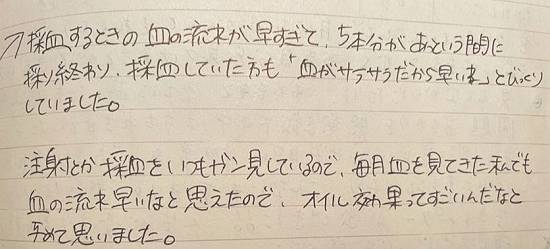 ↗採血するときの血の流れが早すぎて、5本分があっという間に
採り終わり、採血していた方も「血がサラサラだから早いネ」とびっくり
していました。
注射とか採血をいつもガン見しているので、毎月血を見てきた私でも
血の流れ早いなと思えたので、オイル効果ってすごいんだなと
改めて思いました。